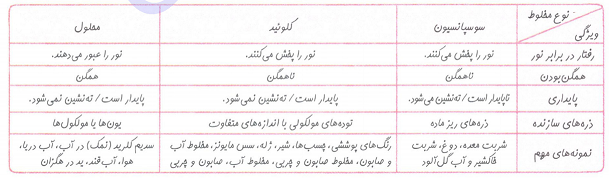 نوع مخلوط
ویژگی
سوسپانسیون
کلوئید
محلول
رفتار در برابر نور
نور را پخش می‌کنند.
نور را پخش می‌کنند.
نور را عبور می‌دهند.
همگن‌بودن
ناهمگن
ناهمگن
همگن
پایداری
ناپایدار است / ته‌نشین می‌شود.
پایدار است / ته‌نشین نمی‌شود.
پایدار است / ته‌نشین نمی‌شود.
ذره‌های سازنده
ذره‌های ریز ماده
توده‌های مولکولی با اندازه‌های متفاوت
یون‌ها یا مولکول‌ها
نمونه‌های مهم
شربت معده، دوغ، شربت
خاکشیر و آب گل‌آلود
رنگ‌های پوششی، چسب‌ها، شیر، ژله، سس مایونز، مخلوط آب
و صابون، مخلوط صابون و چربی، مخلوط آب، صابون و چربی
سدیم کلرید (نمک) در آب، آب دریا،
هوا، آب‌قند، ید در هگزان